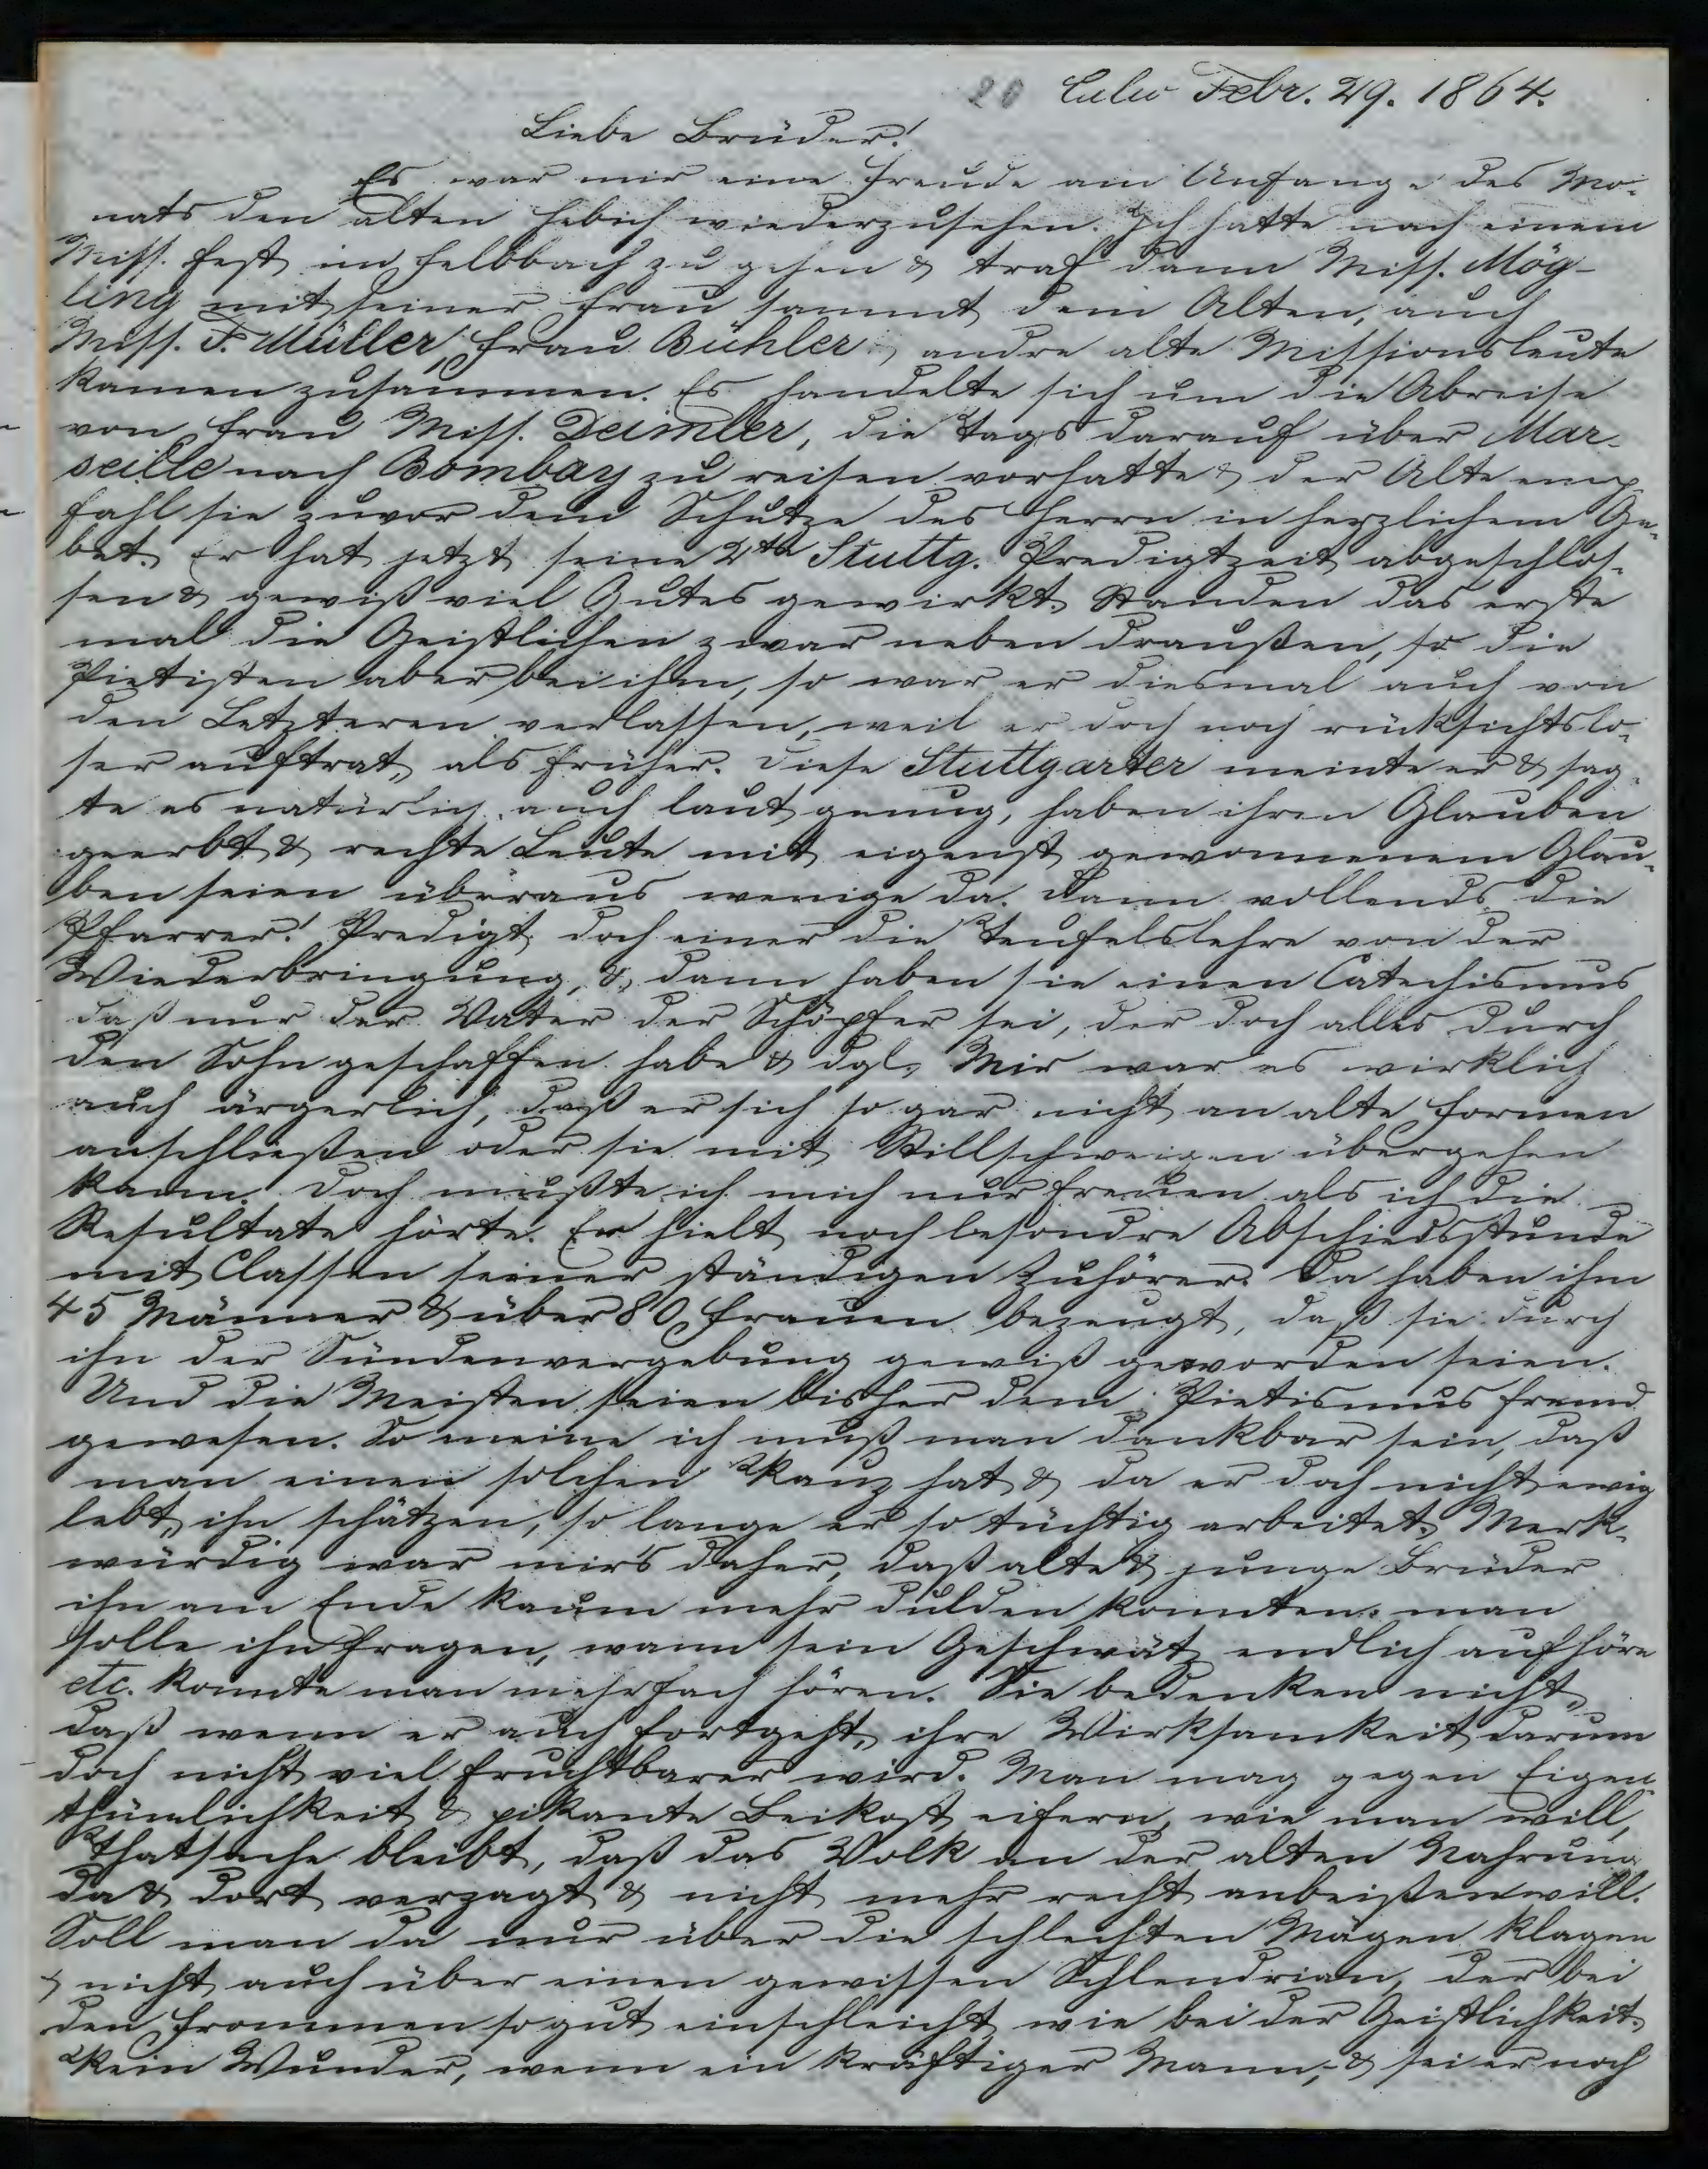 20 Calw Febr. 29. 1864.
Liebe Brüder!
Es war mir eine Freude am Anfange des Mo-
nats den alten Hebich wiederzusehen. Ich hatte nach einem
Miss. Fest in Fellbach zu gehen & traf dann Miss. Mög-
ling mit seiner Frau sammt dem Alten, auch
Miss. F. Müller, Frau Bühler & andre alte Missionsleute
kamen zusammen. Es handelte sich um die Abreise
von Frau Miss. Deimler, die Tags darauf über Mar-
seille nach Bombay zu reisen vorhatte & der Alte emp-
fahl sie zuvor dem Schutze des Herrn in herzlichem Ge-
bet. Er hat jetzt seine 2te Stuttg. Predigtzeit abgeschlos-
sen & gewiß viel Gutes gewirkt. Standen das erste
mal die Geistlichen zwar neben draußen, so die
Pietisten aber bei ihm, so war er diesmal auch von
den Letzteren verlassen, weil er doch noch rücksichtslo-
ser auftrat, als früher. Diese Stuttgarter meinte er & sag-
te es natürlich auch laut genug, haben ihren Glauben
geerbt & rechte Leute mit eigenst gewonnenem Glau-
ben seien überaus wenige da. Dann vollends die
Pfarrer! Predigt doch einer die Teufelslehre von der
Wiederbringung, & dann haben sie einen Catechismus
daß nur der Vater der Schöpfer sei, der doch alles durch
den Sohn geschaffen habe & dgl. Mir war es wirklich
auch ärgerlich, daß er sich so gar nicht an alte Formen
anschließen oder sie mit Stillschweigen übergehen
kann. Doch mußte ich mich nur freuen als ich die
Resultate hörte. Er hielt noch besondre Abschiedsstunde
mit Classen seiner ständigen Zuhörer. Da haben ihm
45 Männer & über 80 Frauen bezeugt, daß sie durch
ihn der Sündenvergebung gewiß geworden seien.
Und die Meisten seien bisher dem Pietismus fremd
gewesen. So meine ich muß man dankbar sein, daß
man einen solchen Kauz hat & da er doch nicht ewig
lebt, ihn schätzen, so lange er so tüchtig arbeitet. Merk-
würdig war mir's daher, daß alte & junge Brüder
ihn am Ende kaum mehr dulden konnten. man
solle ihn fragen, wann sein Geschwätz endlich aufhöre
etc. konnte man mehrfach hören. Sie bedenken nicht,
daß wenn er auch fortgeht, ihre Wirksamkeit darum
doch nicht viel fruchtbarer wird. Man mag gegen Eigen-
thümlichkeit & pikante Beikost eifern, wie man will,
Thatsache bleibt, daß das Volk an der alten Nahrung
da & dort verzagt & nicht mehr recht anbeißen will.
Soll man da nur über die schlechten Mägen klagen
& nicht auch über einen gewissen Schlendrian, der bei
den Frommen so gut einschleicht wie bei der Geistlichkeit.
Kein Wunder, wenn ein kräftiger Mann, & sei er noch